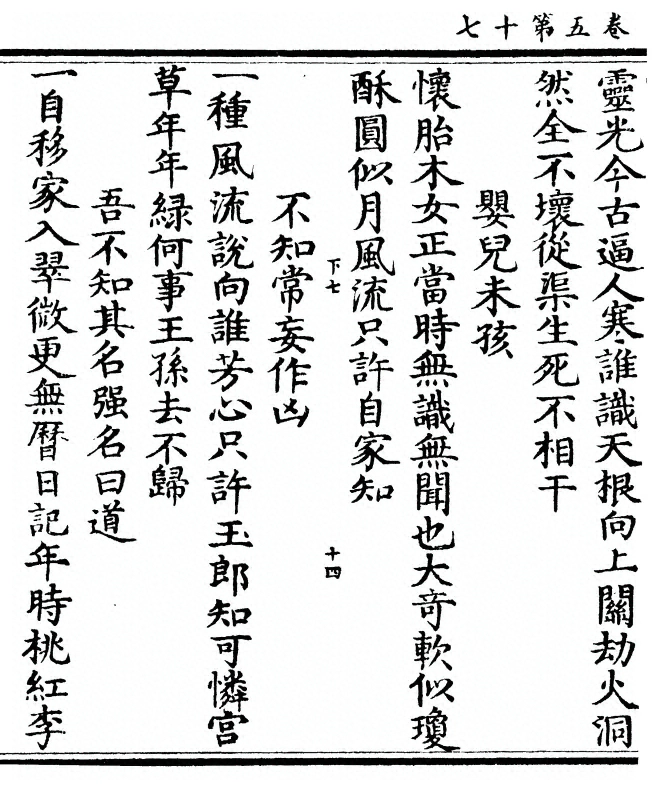 卷五第十七
靈光今古逼人寒誰識天根向上關劫火洞
然全不壞從渠生死不相干
嬰兒未孩
懷胎木女正當時無識無聞也大奇軟似瓊
酥圓似月風流只許自家知
下七
十四
不知常妄作凶
一種風流說向誰芳心只許玉郎知可憐宮
草年年綠何事王孫去不歸
吾不知其名强名曰道
一自移家入翠微更無曆日記年時桃紅李